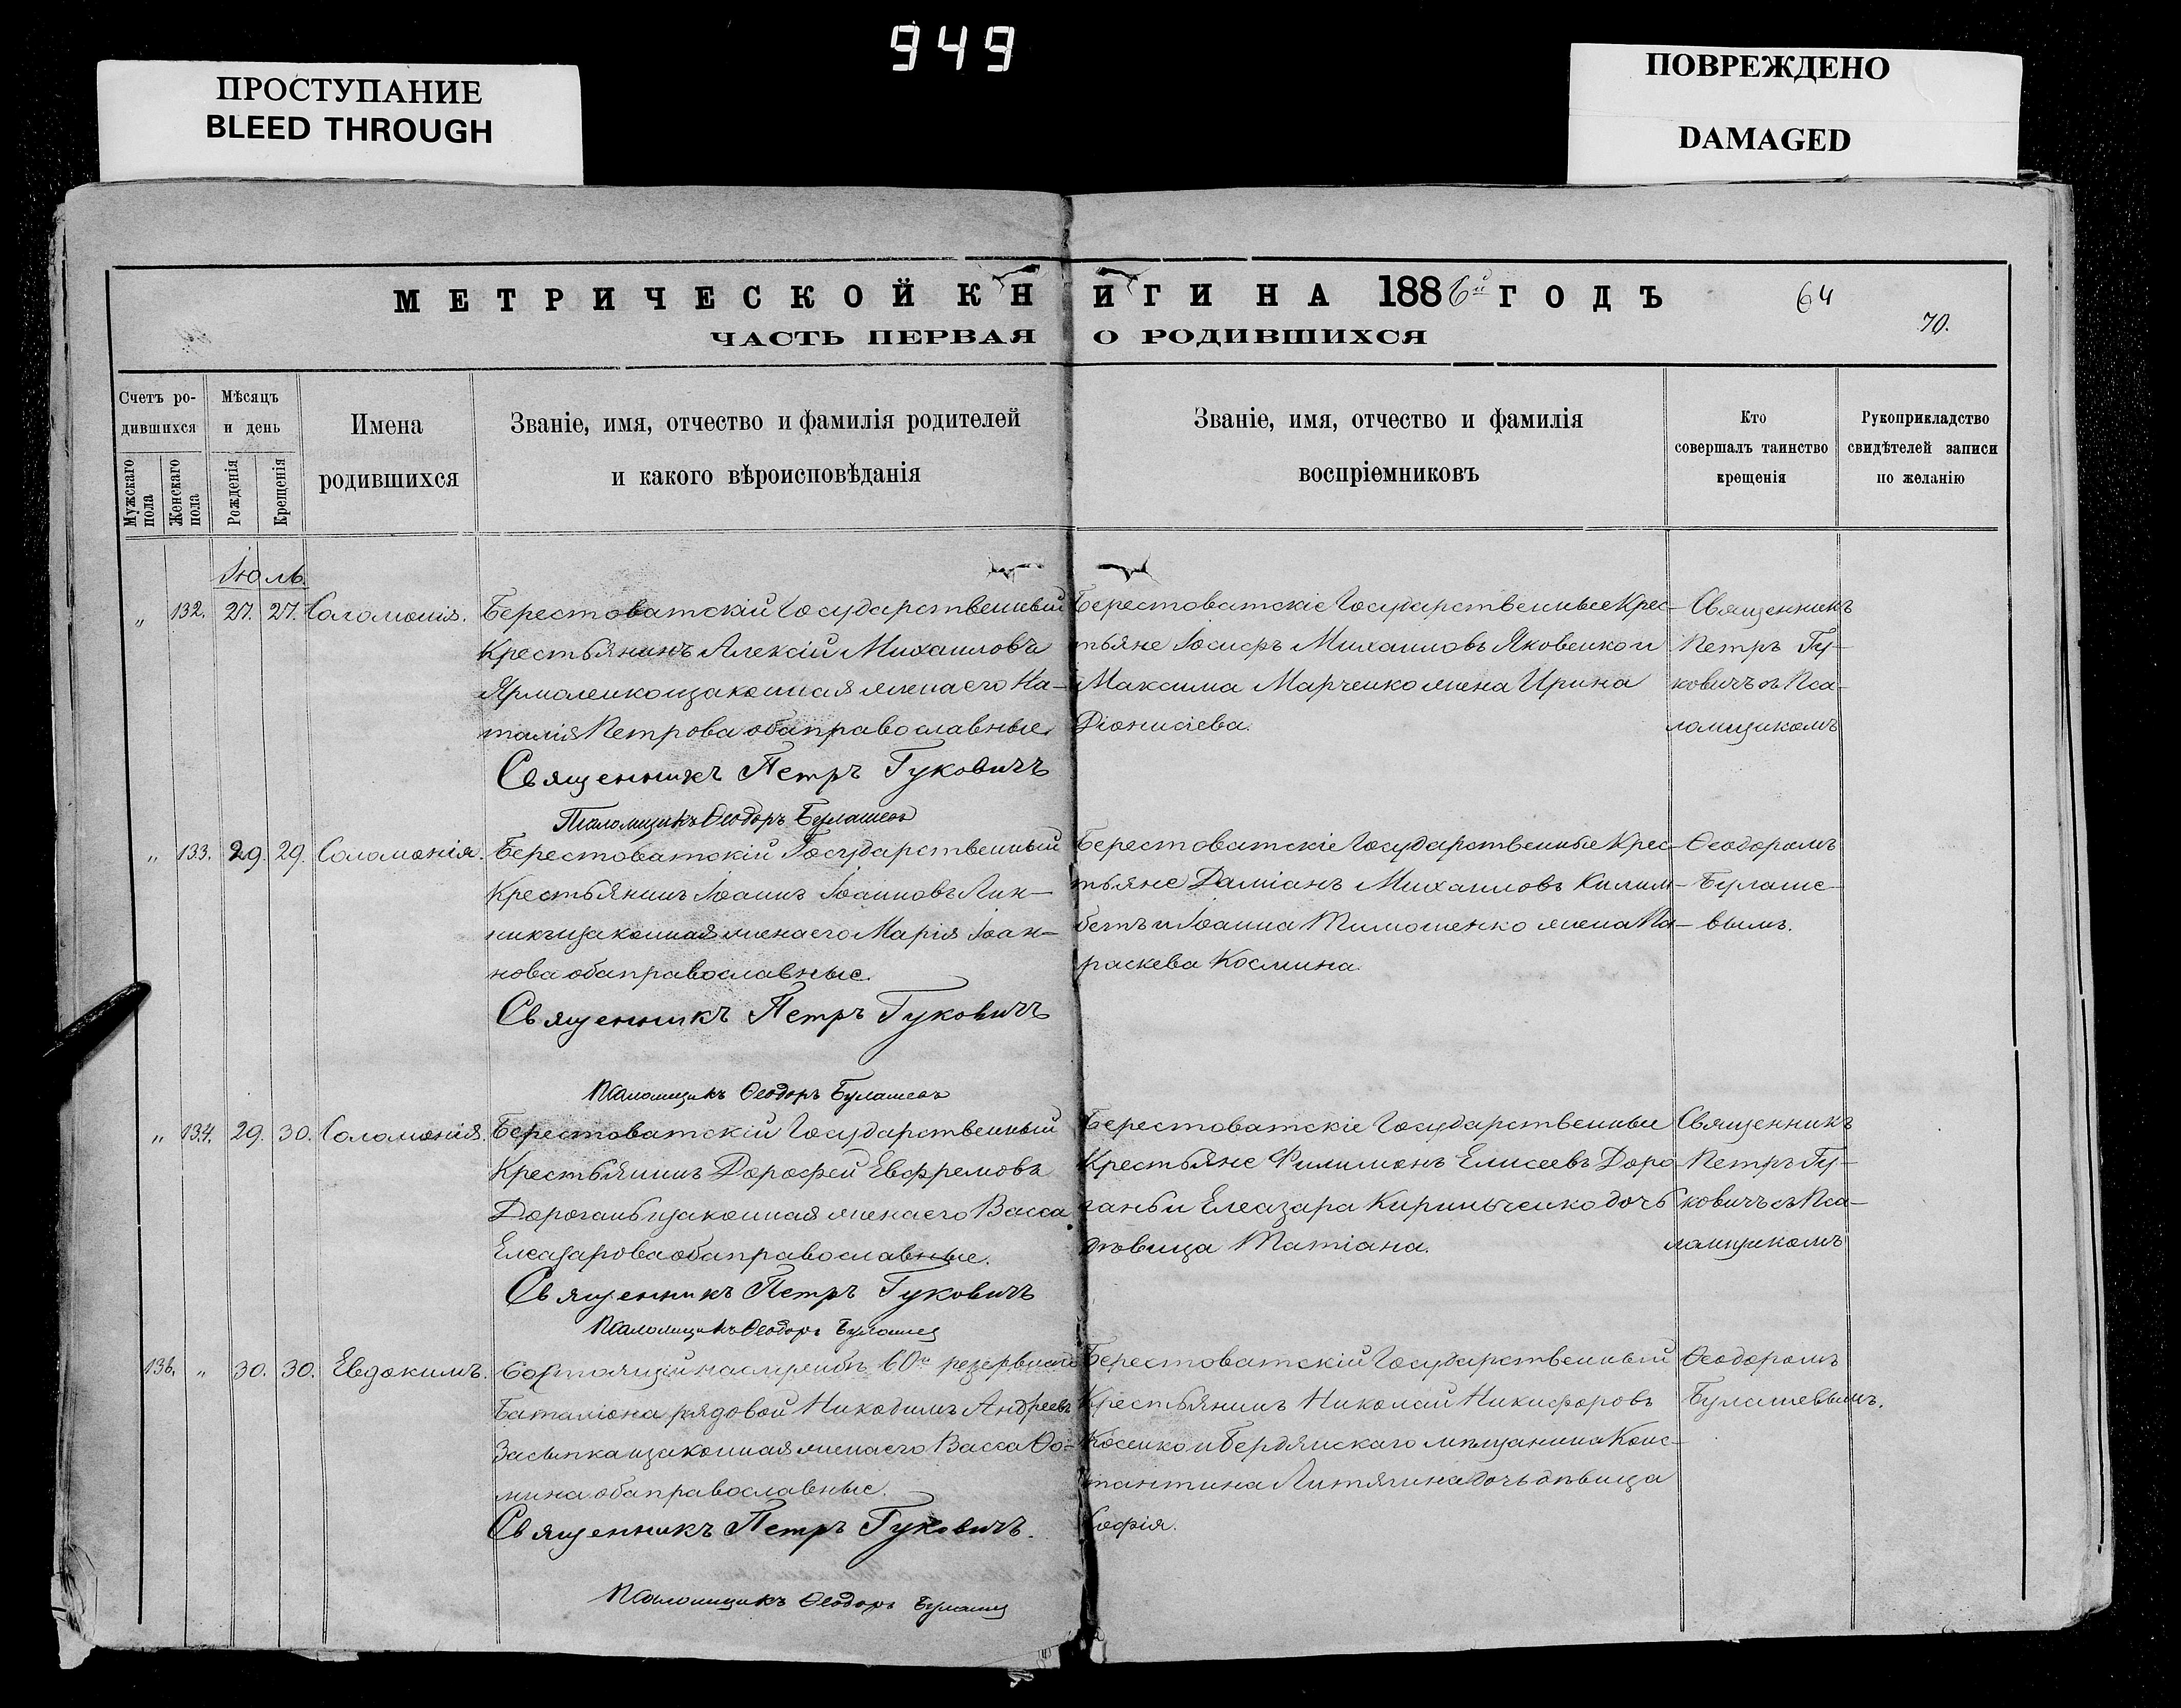 949
ПРОСТУПАНИЕ
BLEED THROUGH
ПОВРЕЖДЕНО
DAMAGED
МЕТРИЧЕСКОЙ КНИГИ НА 1886й ГОДЪ
64
70.
ЧАСТЬ ПЕРВАЯ О РОДИВШИХСЯ
Счетъ ро-
дившихся
Мужскаго пола
Женскаго пола
Мѣсяцъ
и день
Рожденія
Крещенія
Имена
родившихся
Званіе, имя, отчество и фамилія родителей
и какого вѣроисповѣданія
Званіе, имя, отчество и фамилія
воспріемниковъ
Кто
совершалъ таинство
крещенія
Рукоприкладство
свидѣтелей записи
по желанію
Іюль.
„ 132. 27. 27. Соломонія.
Берестоватскій Государственный
Крестьянинъ Алексій Михаиловъ
Ярмоленко и законная жена его На-
талія Петрова оба православные.
Священникъ Петръ Гуковичъ
Псаломщикъ Ѳеодоръ Булашевъ
Берестоватскіе Государственные Крес-
тьяне Іосифъ Михаиловъ Яковенко и
Максима Марченко жена Ирина
Діонисіева.
Священникъ
Петръ Гу-
ковичъ съ Пса-
ломщикомъ
„ 133. 29. 29. Соломонія.
Берестоватскій Государственный
Крестьянинъ Іоаннъ Іоанновъ Лин-
никъ и законная жена его Марія Іоан-
нова оба православные.
Священникъ Петръ Гуковичъ
Псаломщикъ Ѳеодоръ Булашевъ
Берестоватскіе Государственные Крес-
тьяне Даміанъ Михаиловъ Килим-
бетъ и Іоанна Тимошенко жена Па-
раскева Космина.
Ѳеодоромъ
Булаше-
вымъ.
„ 134. 29. 30. Соломонія.
Берестоватскій Государственный
Крестьянинъ Дорофей Евфремовъ
Дорогань и законная жена его Васса
Елеазарова оба православные.
Священникъ Петръ Гуковичъ
Псаломщикъ Ѳеодоръ Булашев
Берестоватскіе Государственные
Крестьяне Филимонъ Елисеевъ Доро
гань и Елеазара Кириченко дочь
дѣвица Татіана.
Священникъ
Петръ Гу-
ковичъ съ Пса-
ломщикомъ
136. „ 30. 30. Евдокимъ.
Состоящій на службѣ 60го резервнаго
Баталіона рядовой Никодимъ Андреевъ
Засыпка и законная жена его Васса Ѳо-
мина оба православные.
Священникъ Петръ Гуковичъ.
Псаломщикъ Ѳеодоръ Булашев
Берестоватскій Государственный
Крестьянинъ Николай Никифоровъ
Косенко и Бердянскаго мѣщанина Конс-
тантина Литягина дочь дѣвица
Софія.
Ѳеодоромъ
Булашевымъ.